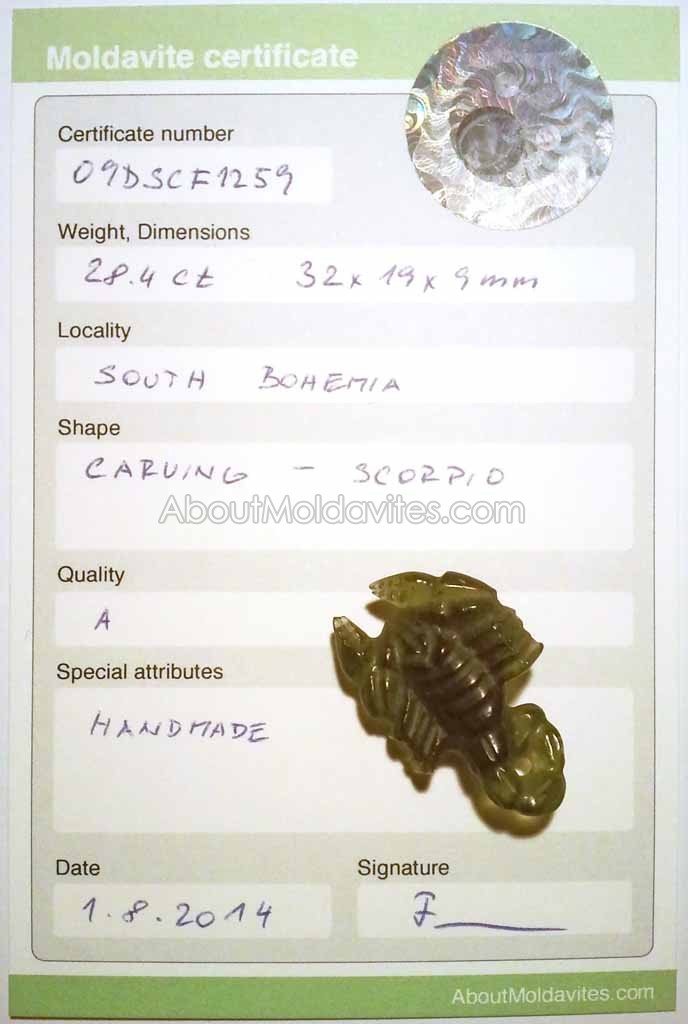 Moldavite certificate
Certificate number
09DSCF1259
Weight, Dimensions
28.4 ct 32x19x9mm
Locality
SOUTH BOHEMIA
Shape
CARVING - SCORPIO
AboutMoldavites.com
Quality
A
Special attributes
HANDMADE
Date
1.8.2014
Signature
AboutMoldavites.com